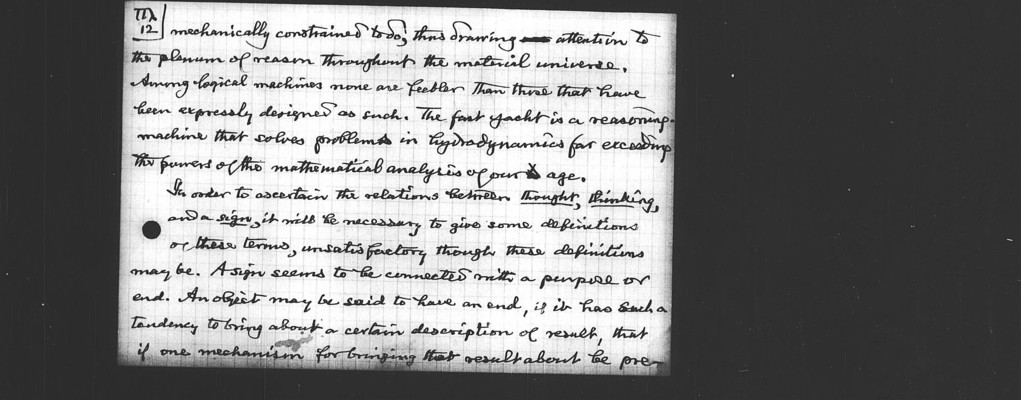 12
mechanically constrained to do; thus drawing attention to
the plenum of reason throughout the material universe.
Among logical machines none are feebler than those that have
been expressly designed as such. The fast yacht is a reasoning-
machine that solves problems in hydrodynamics far exceeding
the powers of the mathematical analysis of our age.
In order to ascertain the relations between thought, thinking,
and a sign, it will be necessary to give some definitions
of these terms, unsatisfactory though these definitions
may be. A sign seems to be connected with a purpose or
end. An object may be said to have an end, if it has such a
tendency to bring about a certain description of result, that
if one mechanism for bringing that result about be pre-